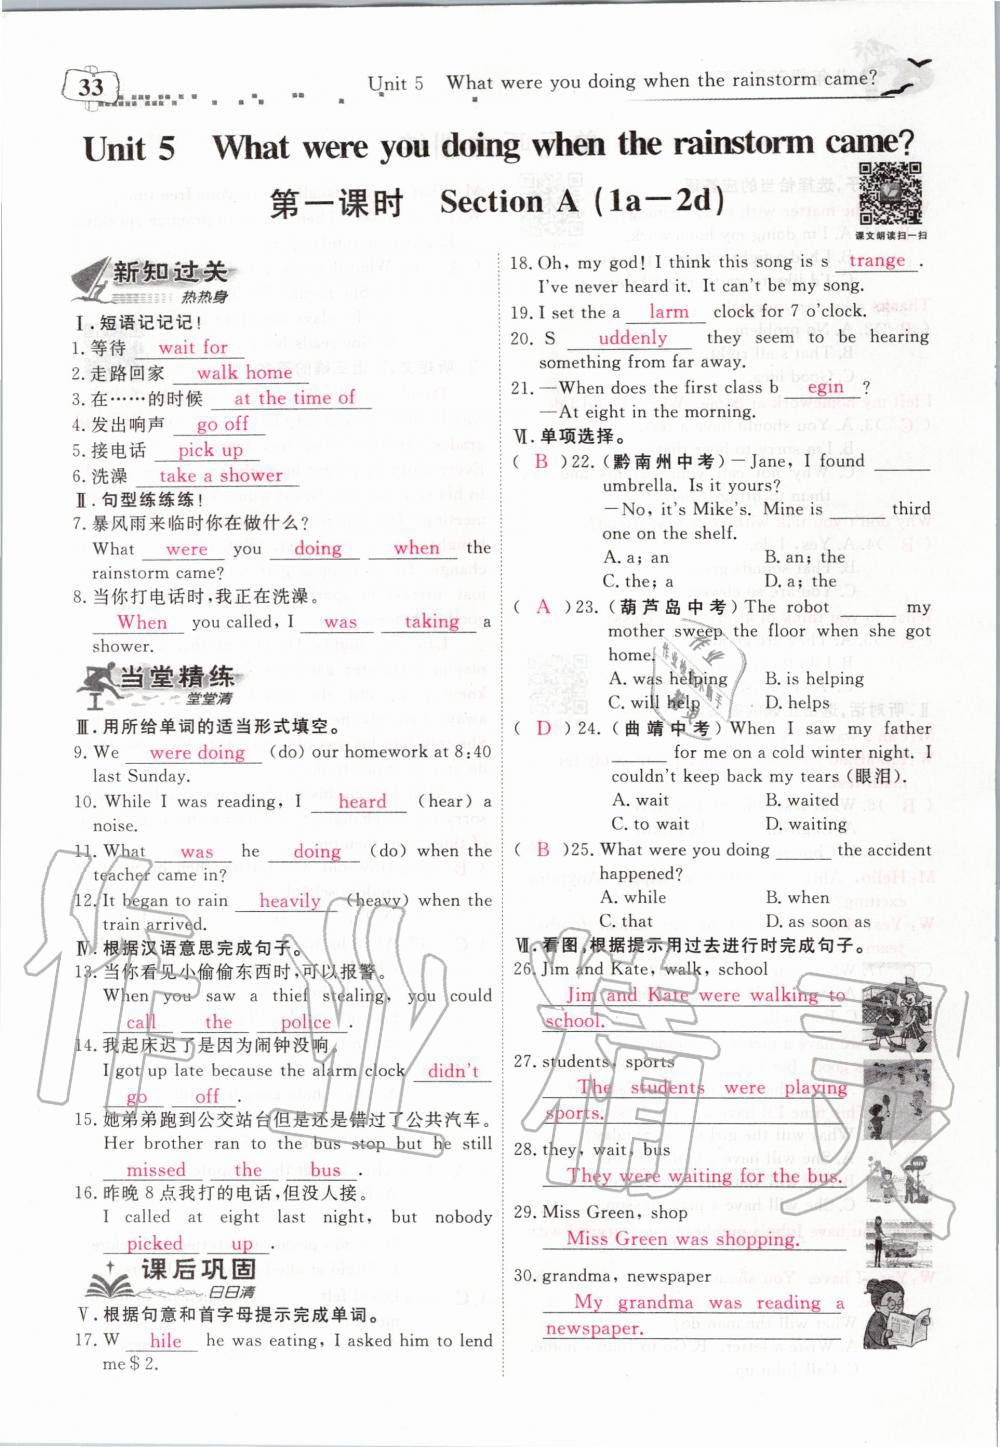 33
Unit 5 What were you doing when the rainstorm came?
Unit 5 What were you doing when the rainstorm came?
第一课时 Section A (1a-2d)
课文朗读扫一扫
新知过关
热热身
Ⅰ.短语记记记!
1.等待 wait for
2.走路回家 walk home
3.在……的时候 at the time of
4.发出响声 go off
5.接电话 pick up
6.洗澡 take a shower
Ⅱ.句型练练练!
7.暴风雨来临时你在做什么?
What were you doing when the
rainstorm came?
8.当你打电话时,我正在洗澡。
When you called, I was taking a
shower.
当堂精练
堂堂清
Ⅲ.用所给单词的适当形式填空。
9. We were doing (do) our homework at 8:40
last Sunday.
10. While I was reading, I heard (hear) a
noise.
11. What was he doing (do) when the
teacher came in?
12. It began to rain heavily (heavy) when the
train arrived.
Ⅳ.根据汉语意思完成句子。
13.当你看见小偷偷东西时,可以报警。
When you saw a thief stealing, you could
call the police.
14.我起床迟了是因为闹钟没响。
I got up late because the alarm clock didn't
go off.
15.她弟弟跑到公交站台但是还是错过了公共汽车。
Her brother ran to the bus stop but he still
missed the bus.
16.昨晚8点我打的电话,但没人接。
I called at eight last night, but nobody
picked up.
课后巩固
日日清
Ⅴ.根据句意和首字母提示完成单词。
17. W hile he was eating, I asked him to lend
me $ 2.
18. Oh, my god! I think this song is s trange.
I've never heard it. It can't be my song.
19. I set the a larm clock for 7 o'clock.
20. S uddenly they seem to be hearing
something from far away.
21. —When does the first class b egin ?
—At eight in the morning.
Ⅵ.单项选择。
( B )22.(黔南州中考)—Jane, I found ______
umbrella. Is it yours?
—No, it's Mike's. Mine is ______ third
one on the shelf.
A. a; an B. an; the
C. the; a D. a; the
( A )23.(葫芦岛中考)The robot ______ my
mother sweep the floor when she got
home.
A. was helping B. is helping
C. will help D. helps
( D )24.(曲靖中考)When I saw my father
______ for me on a cold winter night, I
couldn't keep back my tears (眼泪).
A. wait B. waited
C. to wait D. waiting
( B )25. What were you doing ______ the accident
happened?
A. while B. when
C. that D. as soon as
Ⅶ.看图,根据提示用过去进行时完成句子。
26. Jim and Kate, walk, school
Jim and Kate were walking to
school.
27. students, sports
The students were playing
sports.
28. they, wait, bus
They were waiting for the bus.
29. Miss Green, shop
Miss Green was shopping.
30. grandma, newspaper
My grandma was reading a
newspaper.
作业精灵